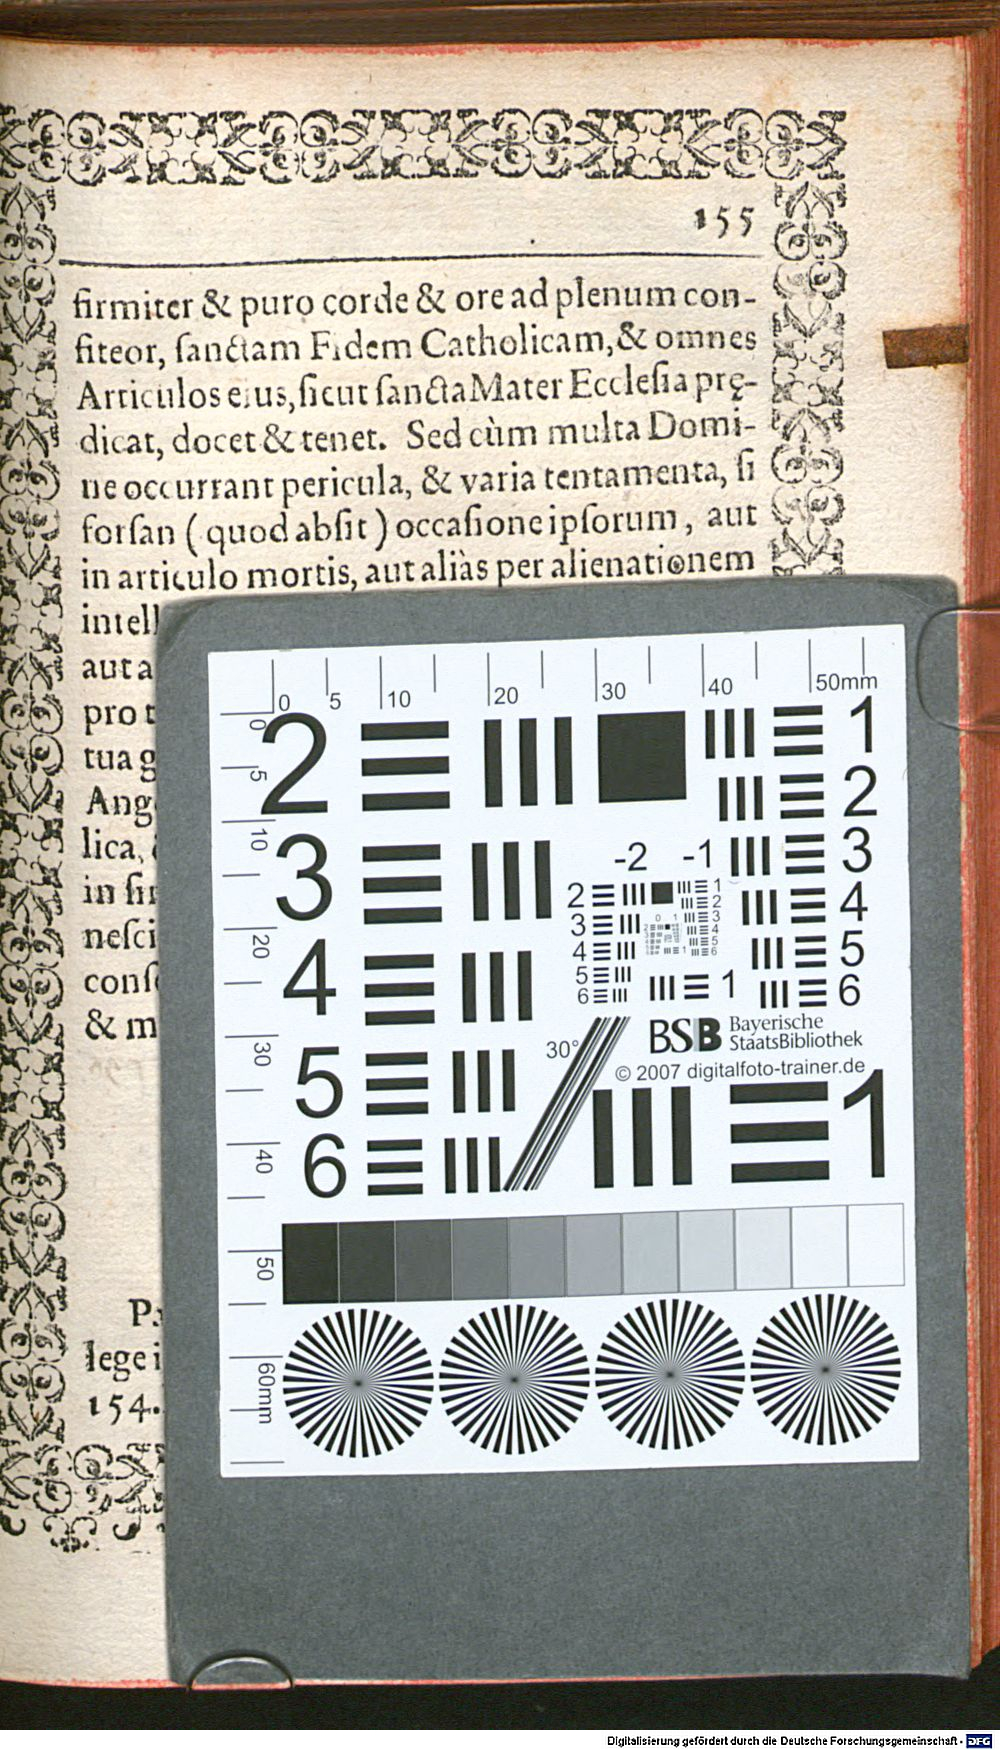 155
firmiter & puro corde & ore ad plenum con-
fiteor, ſanctam Fidem Catholicam, & omnes
Articulos ejus, ſicut ſancta Mater Eccleſia prę-
dicat, docet & tenet. Sed cùm multa Domi-
ne occurrant pericula, & varia tentamenta, ſi
forſan ( quod abſit ) occaſione ipſorum, aut
in articulo mortis, aut aliàs per alienationem
intell
aut a
pro t
tua g
Ang
lica,
in fir
neſci
conſ
& m
lege i
154.
0 5 10 20 30 40 50mm
0 5 10 20 30 40 50 60mm
2 1
2
3 3
4 4
5 5
6 6
-2 -1
2 1
2
3 3
4 4
5 5
6 6
1
0 1
30°
BSB Bayerische
StaatsBibliothek
© 2007 digitalfoto-trainer.de
1
Digitalisierung gefördert durch die Deutsche Forschungsgemeinschaft - DFG